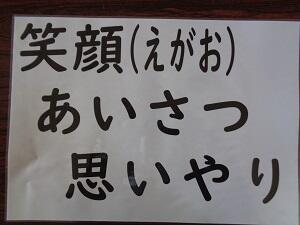 笑顔(えがお)
あいさつ
思いやり